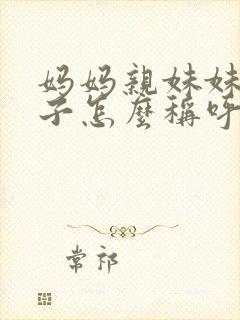 妈妈親妹妹
子怎麼稱呼
常祁